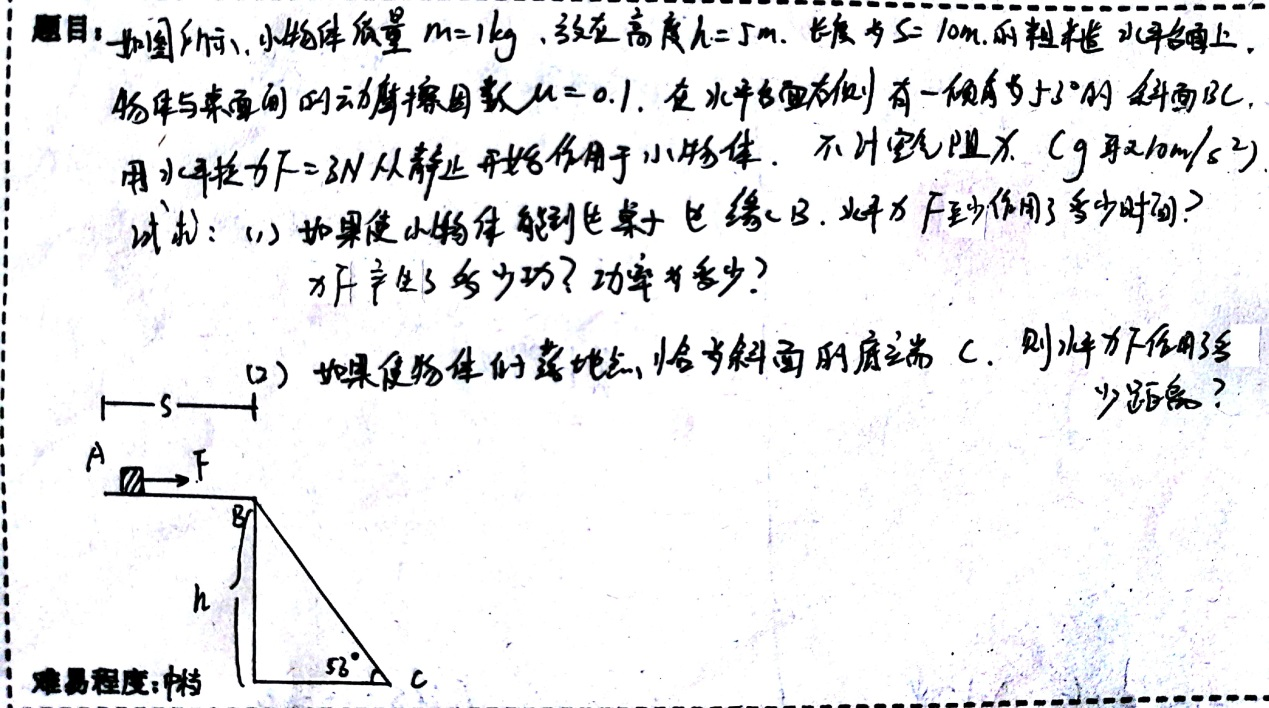 题目:如图所示、小物体质量 m=1kg、放在高度h=5m.长度为S=10m.的粗糙 水平台面上.
物体与桌面间的动摩擦因数μ=0.1.在水平台面右侧有一倾角为53°的斜面BC.
用水平拉力F=3N从静止开始作用于小物体.不计空气阻力.(g取10m/s²)
试求:(1)如果使小物体能到达桌子边缘B.水平力F至少作用了多少时间?
力F产生了多少功?功率为多少?
(2)如果使物体的落地点恰为斜面的底端C.则水平力F作用了多
少距离?
S
A
F
B
h
53°
C
难易程度:中档